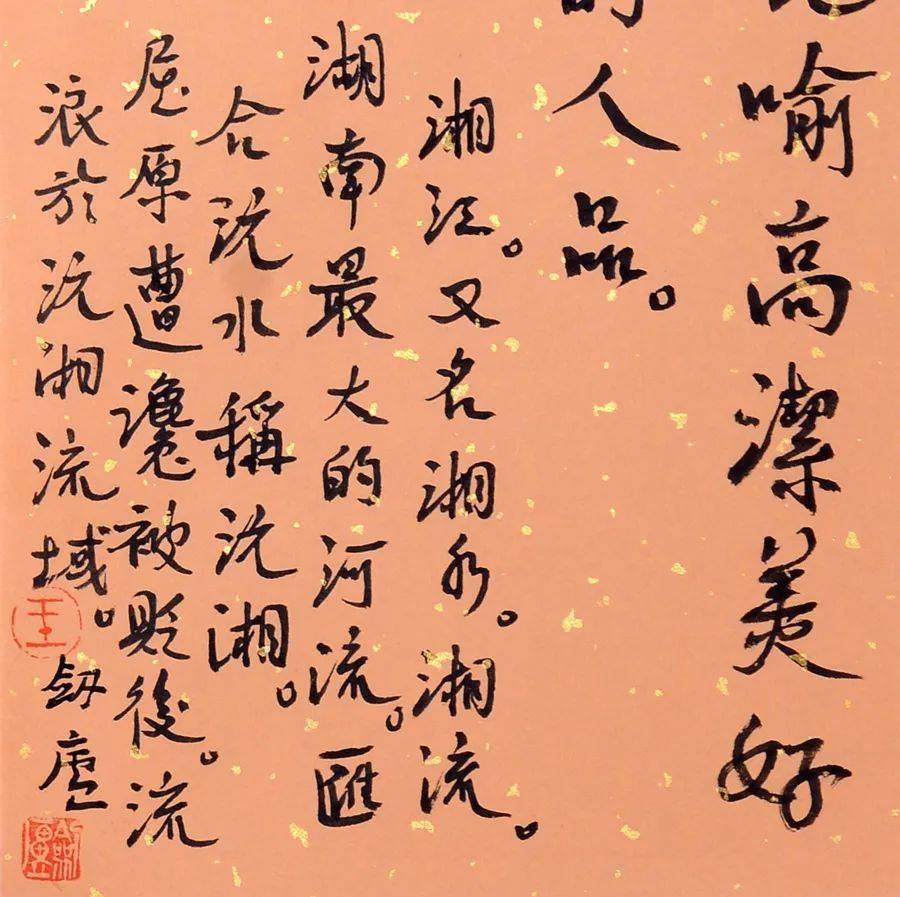 喻高潔美好
的人品。
湘江。又名湘水。湘流。
湖南最大的河流。匯
合沅水稱沅湘。
屈原遭讒被貶後。流
浪於沅湘流域。釼廬